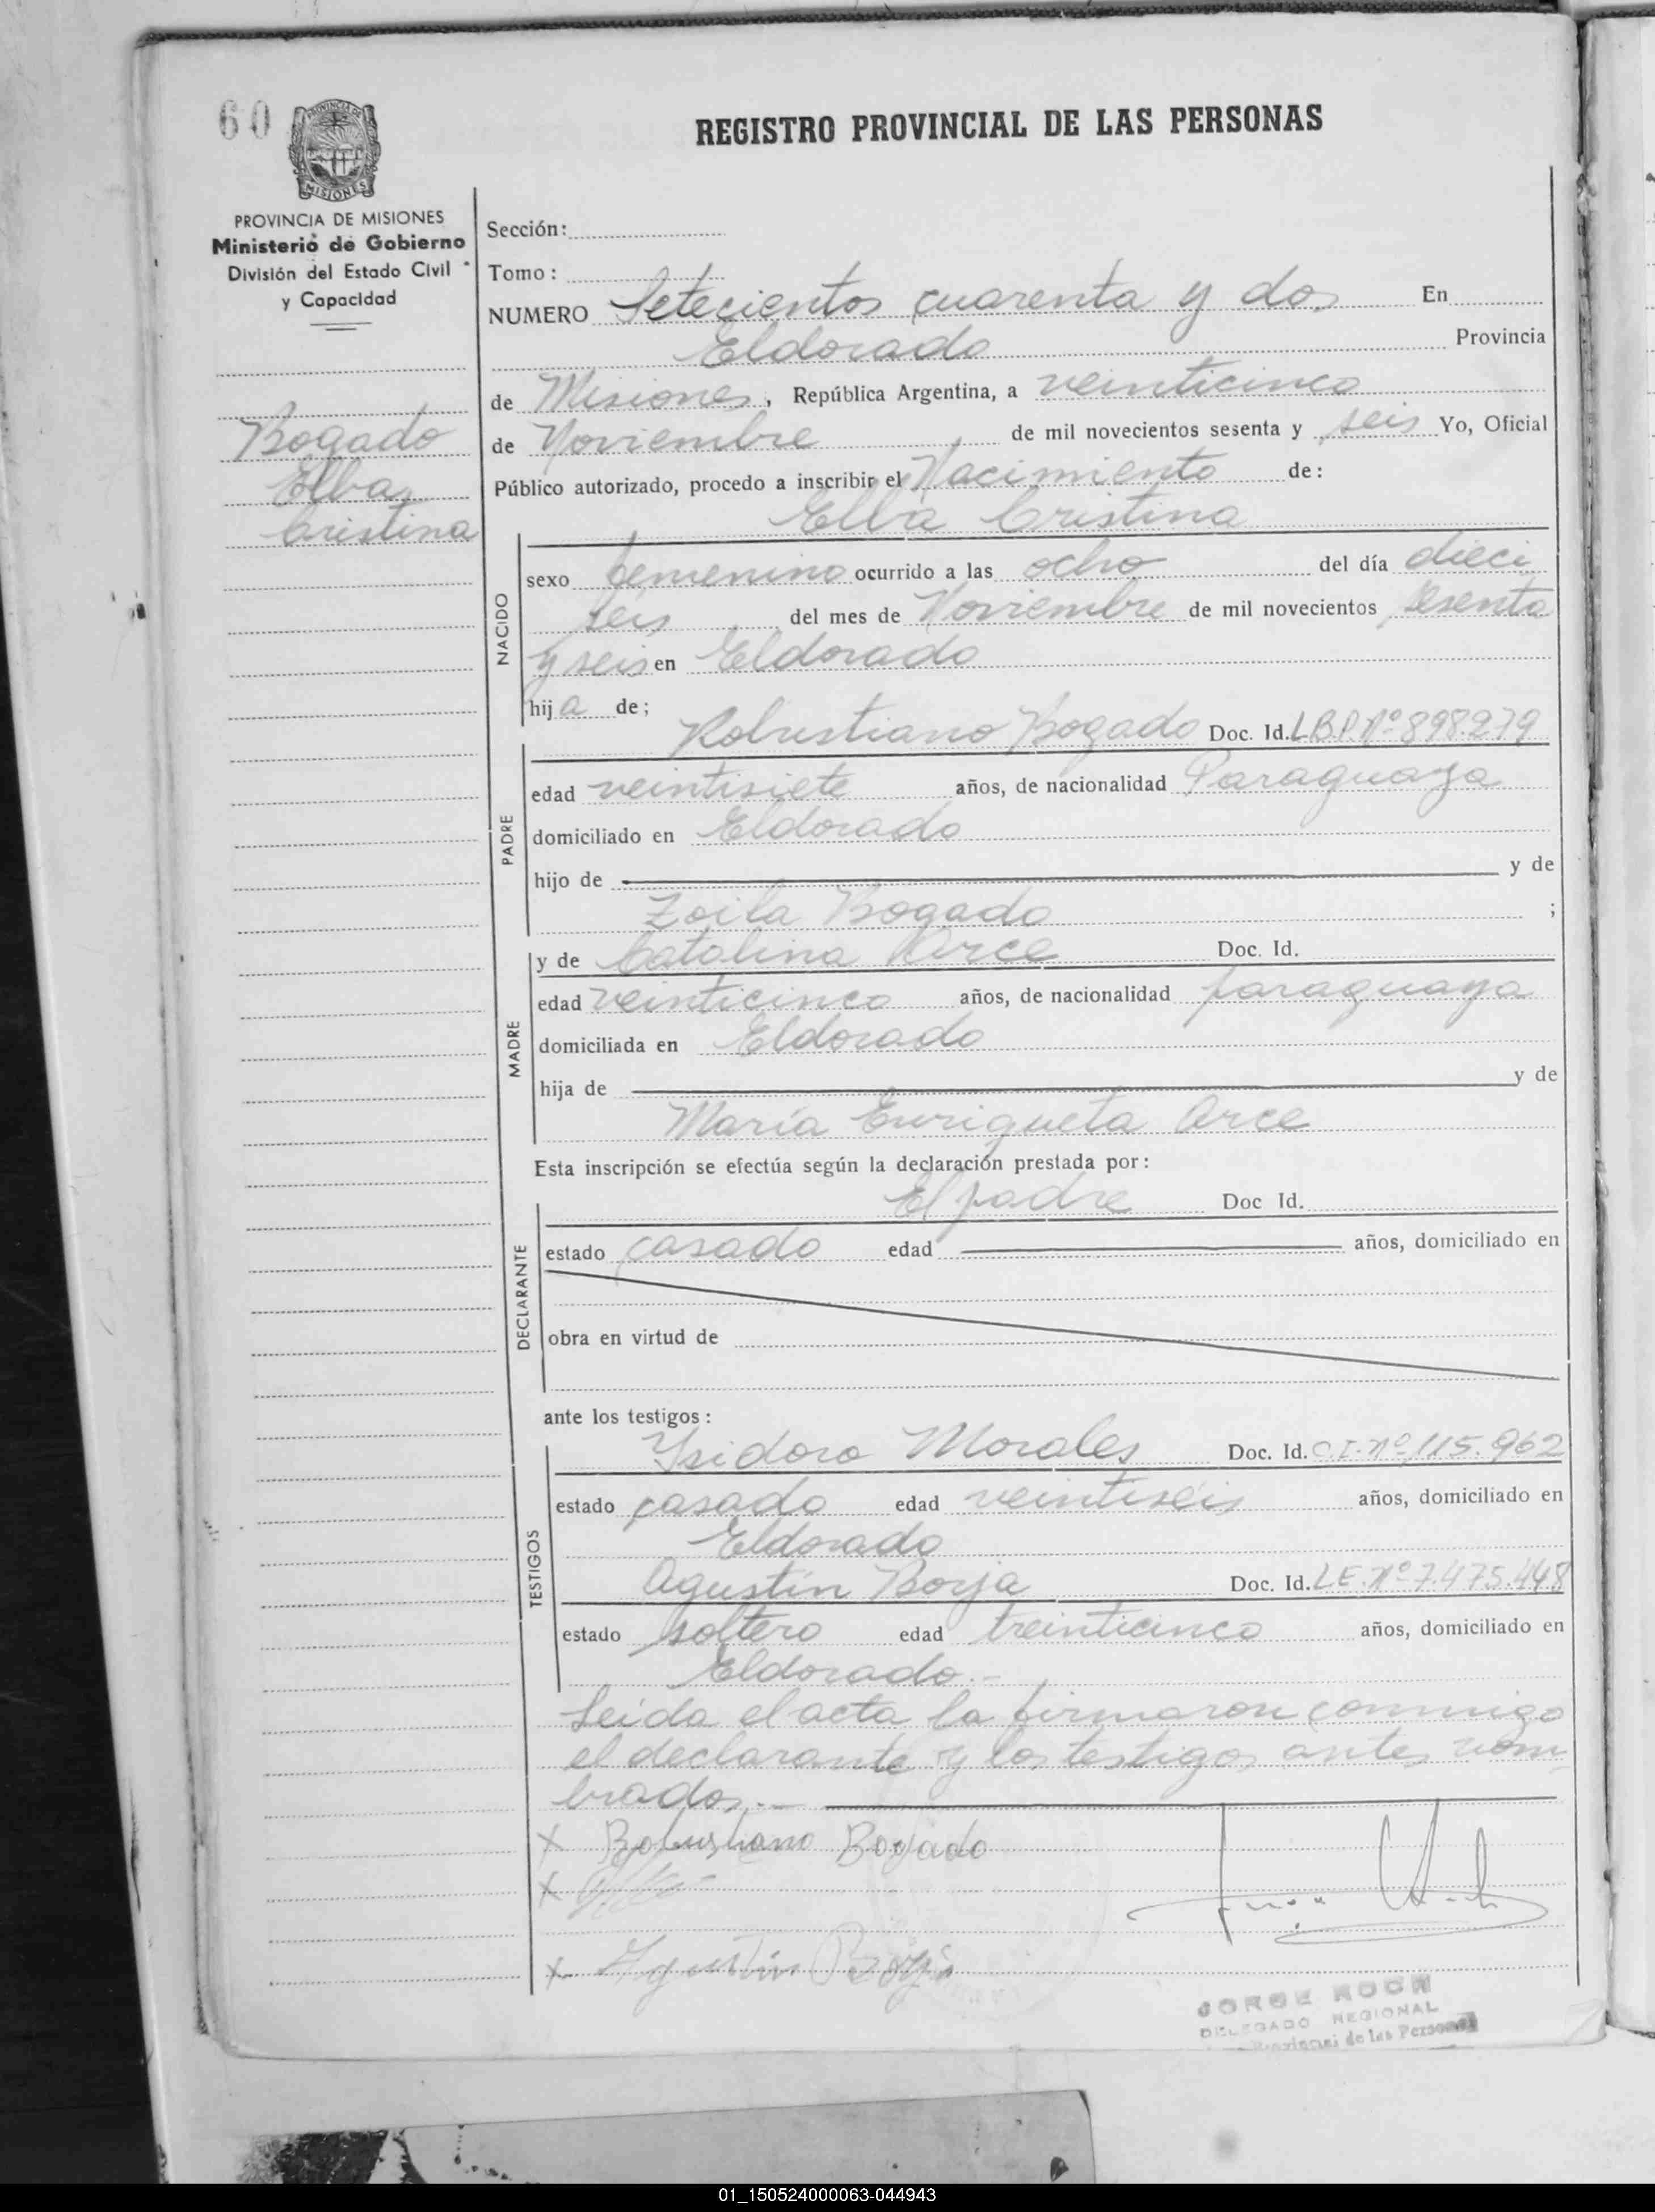 60
REGISTRO PROVINCIAL DE LAS PERSONAS
PROVINCIA DE MISIONES
Ministerio de Gobierno
División del Estado Civil
y Capacidad
Bogado
Elba
Cristina
Sección:
Tomo:
NUMERO Setecientos cuarenta y dos En
Eldorado Provincia
de Misiones, República Argentina, a veinticinco
de Noviembre de mil novecientos sesenta y seis Yo, Oficial
Público autorizado, procedo a inscribir el Nacimiento de:
Elba Cristina
NACIDO
sexo femenino ocurrido a las ocho del día dieci
seis del mes de Noviembre de mil novecientos sesenta
y seis en Eldorado
hija de;
Robustiano Bogado Doc. Id. L.B.P. Nº 898.279
PADRE
edad veintisiete años, de nacionalidad Paraguaya
domiciliado en Eldorado
hijo de y de
Zoila Bogado ;
MADRE
y de Catalina Arce Doc. Id.
edad veinticinco años, de nacionalidad paraguaya
domiciliada en Eldorado
hija de y de
María Enriqueta Arce
Esta inscripción se efectúa según la declaración prestada por:
DECLARANTE
El padre Doc Id.
estado casado edad años, domiciliado en
obra en virtud de
ante los testigos:
TESTIGOS
Ysidoro Morales Doc. Id. C.I. Nº 115.962
estado casado edad veintiseis años, domiciliado en
Eldorado
Agustín Borja Doc. Id. L.E. Nº 7.475.448
estado soltero edad treinticinco años, domiciliado en
Eldorado.-
Leída el acta la firmaron conmigo
el declarante y los testigos antes nom-
brados.-
x Robustiano Bogado
x
x Agustin Borja
JORGE KOCH
DELEGADO REGIONAL
Provincial de las Personas
01_150524000063-044943